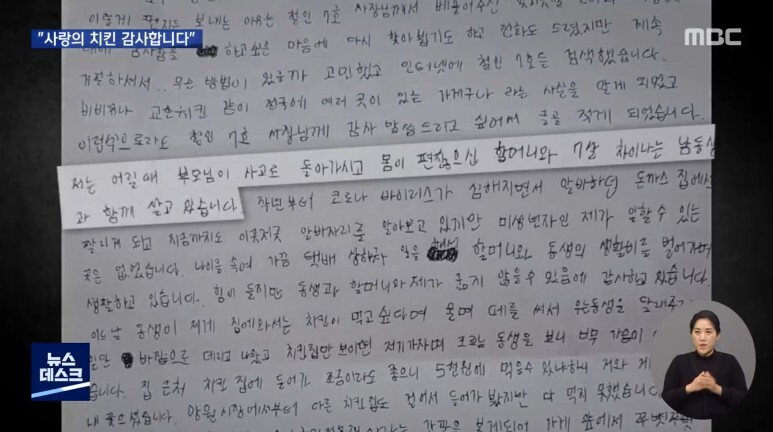 "사랑의 치킨 감사합니다"
MBC
이렇게 보내는 이유는 철인 7호 사장님께서 베풀어주신
하고싶은 마음에 다시 찾아뵙기도 하고 전화도 드렸지만 계속
거절하셔서.. 무슨 방법이 있을까 고민했고 인터넷에 철인 7호를 검색했습니다.
비비큐나 교촌치킨 같이 전국에 여러 곳이 있는 가게구나 라는 사실을 알게 되었고
이런식으로라도 철인 7호 사장님께 감사 말씀드리고 싶어서 글을 적게 되었습니다.
저는 어릴때 부모님이 사고로 돌아가시고 몸이 편찮으신 할머니와 7살 차이나는 남동생
과 함께 살고 있습니다. 작년부터 코로나 바이러스가 심해지면서 알바하던 돈까스 집에서
짤리게 되고 지금까지도 이곳저곳 알바자리를 알아보고 있지만 미성년자인 제가 일할 수 있는
곳은 없었습니다. 나이를 속여 가끔 택배 상하차 일을 해서 할머니와 동생의 생활비를 벌어가며
생활하고 있습니다. 힘이 들지만 동생과 할머니와 제가 굶지 않을수 있음에 감사하고 있습니다.
어느날 동생이 제게 집에와서는 치킨이 먹고싶다며 울며 떼를 써서 우는동생을 달래주
일단 바깥으로 데리고 나왔고 치킨집만 보이면 저기가자며 조르는 동생을 보니 너무 가슴이
습니다. 집 근처 치킨 집에 들어가 조금이라도 좋으니 5천원에 먹을수 있냐하니 저와
내쫓으셨습니다. 망원시장에서부터 다른 치킨집도 걸어서 들어가 봤지만 다 먹지 못했습니다
간판을 보게되어 가게 앞에서
뉴스
데스크